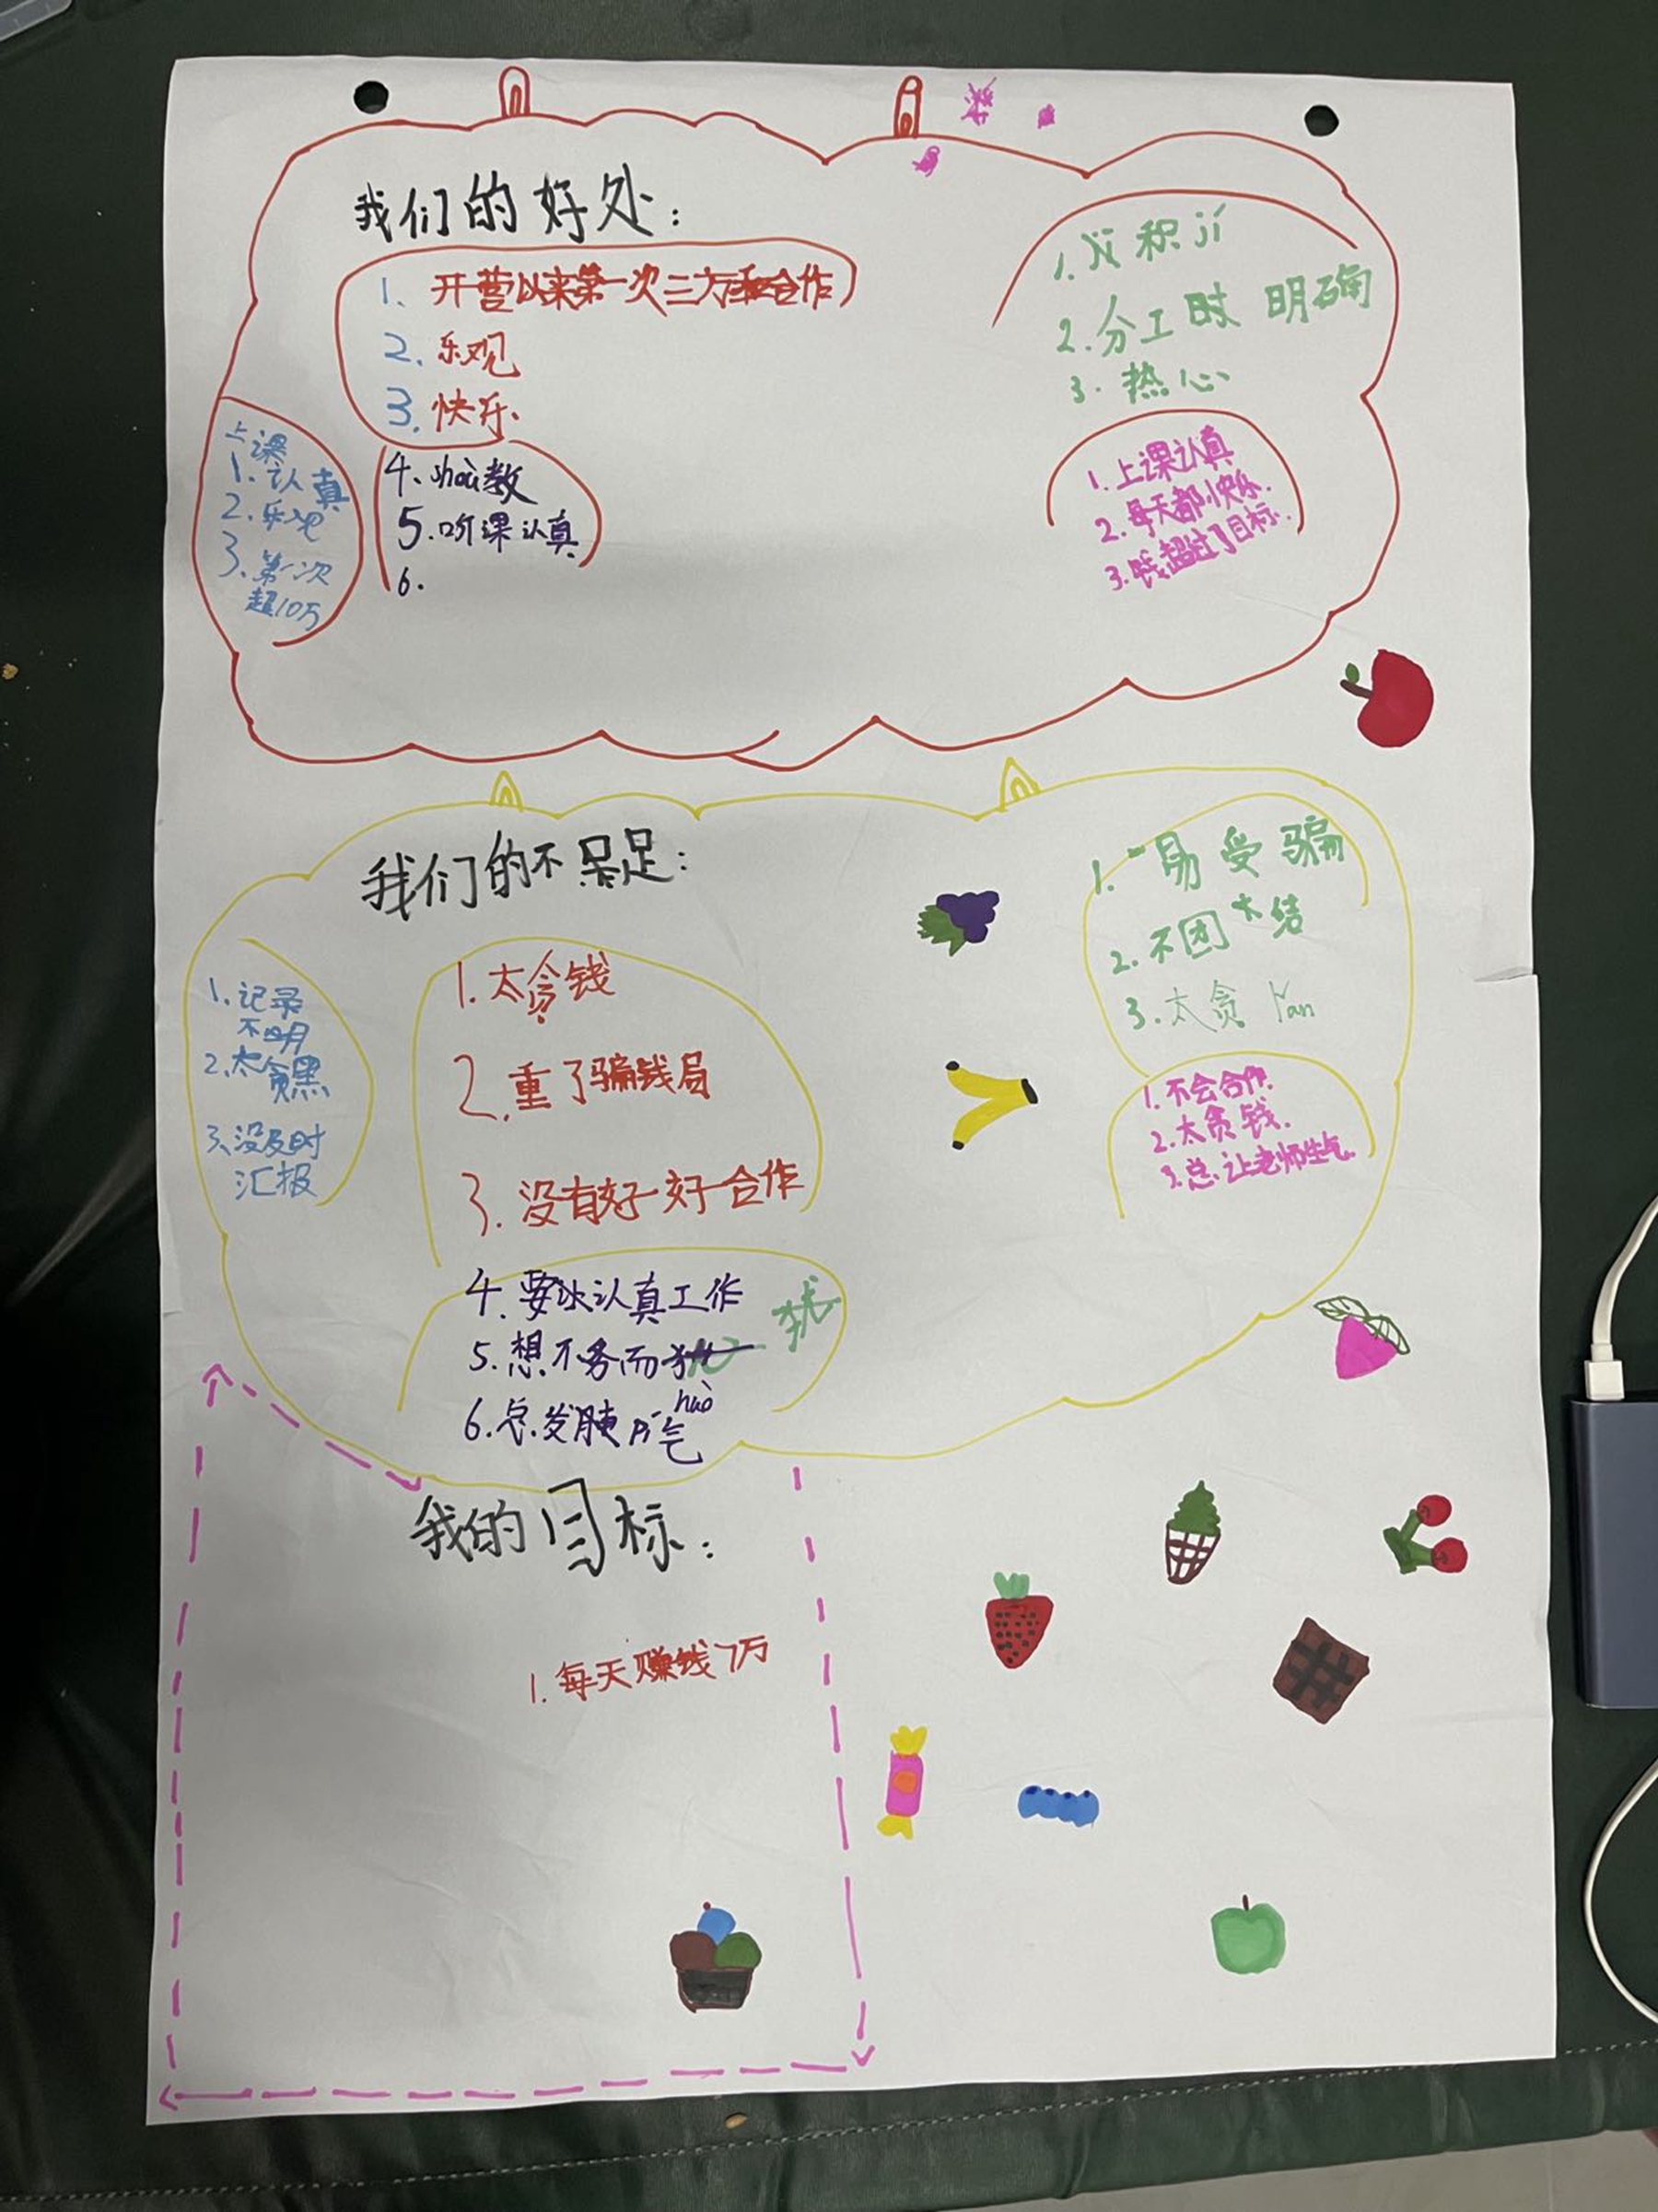 我们的好处：
1. 开营以来第一次三方合作
2. 乐观
3. 快乐.
4. shòu教
5. 听课认真
6.
上课
1. 认真
2. 乐观
3. 第一次
超10万
1. 积jí
2. 分工时 明确
3. 热心
1. 上课认真
2. 每天都快乐.
3. 钱超过了目标.
我们的不足：
1. 太贪钱
2. 重了骗钱局
3. 没有好好合作
4. 要认真工作
5. 想不务而
6. 总发脾气
1. 记录
不明
2. 太贪
3. 没及时
汇报
1. 易受骗
2. 不团结
3. 太贪
1. 不会合作.
2. 太贪钱.
3. 总让老师生气.
我的目标：
1. 每天赚钱7万